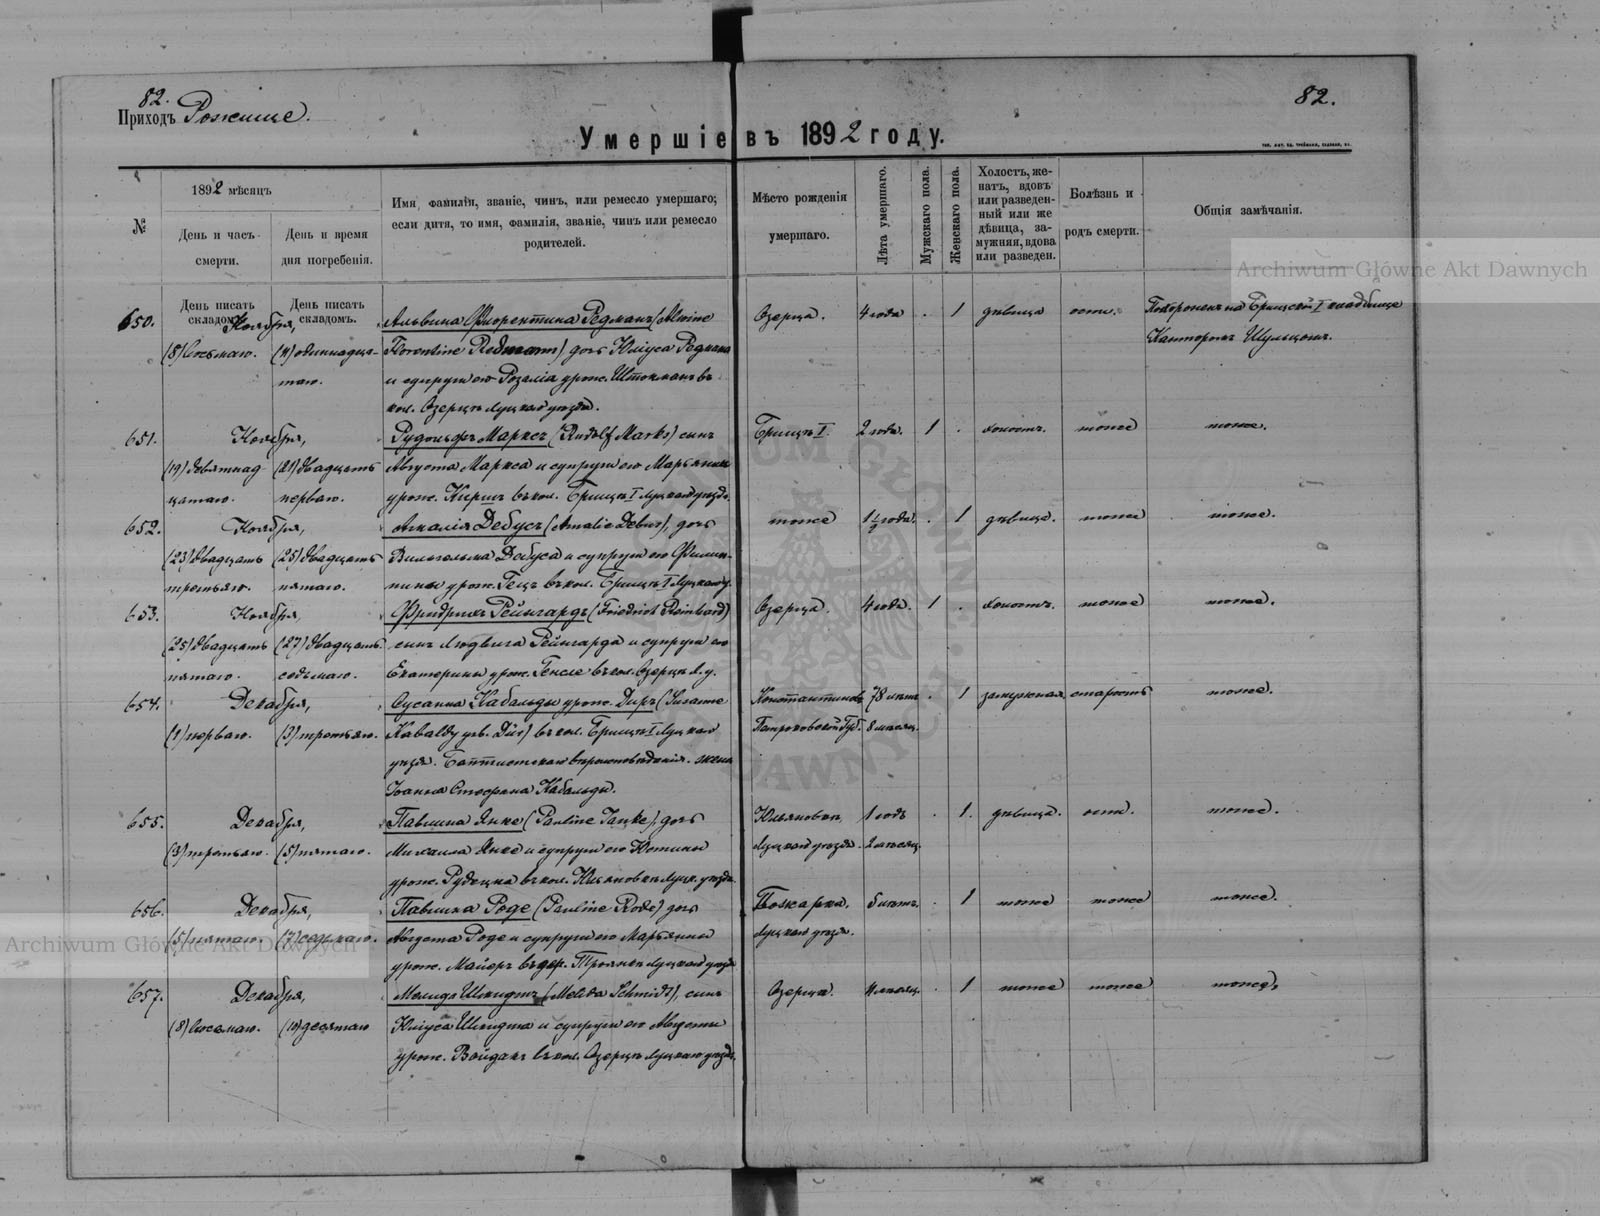 82.
Приходъ Рожище.
82.
Умершіе въ 1892 году.
№
1892 мѣсяцъ
День и часъ смерти.
День и время дня погребенія.
Имя, фамилія, званіе, чинъ, или ремесло умершаго;
если дитя, то имя, фамилія, званіе, чинъ или ремесло
родителей.
Мѣсто рожденія
умершаго.
Лѣта умершаго.
Мужскаго пола.
Женскаго пола.
Холостъ, же-
натъ, вдовъ
или разведен-
ный или же
дѣвица, за-
мужняя, вдова
или разведен.
Болѣзнь и
родъ смерти.
Общія замѣчанія.
Archiwum Główne Akt Dawnych
День писать складомъ.
День писать складомъ.
650. Ноября, Альвина Флорентина Редманъ (Alwine Озерца. 4 года 1 дѣвица оспа. Похороненъ на Брищской I кладбище
(8) восьмаго. (11) одиннадца- Florentine Redmann) дочь Юліуса Редмана Канторомъ Шульцомъ.
таго. и супруги его Розаліи урож. Штокманъ въ
кол. Озерцѣ Луцкаго уѣзда.
651. Ноября, Рудольфъ Марксъ (Rudolf Marks) сынъ Брищъ I. 2 года. 1 . холостъ. тоже тоже.
(19) девятнад (21) двадцать Августа Маркса и супруги его Марьянны
цатаго. перваго. урож. Киршъ въ кол. Брищѣ I Луцкаго уѣзда.
652. Ноября, Амалія Дебусъ (Amalie Debus), дочь тоже 1½ года. . 1 дѣвица. тоже тоже.
(23) двадцать (25) двадцать Вильгельма Дебуса и супруги его Филип-
третьяго. пятаго. пины урож. Гецъ въ кол. Брищѣ I Луцкаго у.
653. Ноября, Фридрихъ Рейнгардъ (Friedrich Reinhard) Озерца. 4 года. 1 . холостъ. тоже тоже.
(25) двадцать (27) двадцать сынъ Людвига Рейнгарда и супруги его
пятаго. седьмаго. Екатерины урож. Генсле въ кол. Озерцѣ Л. у.
654. Декабря, Сусанна Кабальды урож. Диръ (Susanne Константиновъ 78 лѣтъ . 1 замужняя старость тоже.
(1) перваго. (3) третьяго. Kabaldy geb. Dür) въ кол. Брищѣ I Луцкаго Петроковской Губ. 8 мѣсяц.
уѣзда. Баптистскаго вѣроисповѣданія. жена
Іоанна Стефана Кабальды.
655. Декабря, Павлина Янке (Pauline Janke), дочь Юльяновка, 1 годъ . 1. дѣвица. оспа. тоже.
(3) третьяго. (5) пятаго. Михаила Янке и супруги его Юстины Луцкаго уѣзда. 2 мѣсяц.
урож. Рудецка въ кол. Юльяновкѣ Луцк. уѣзда.
656. Декабря, Павлина Роде (Pauline Rode) дочь Пожарка, 6 лѣтъ. . 1 тоже тоже тоже.
(5) пятаго. (7) седьмаго. Августа Роде и супруги его Марьянны Луцкаго уѣзда.
урож. Майеръ въ дер. Троянкѣ Луцкаго уѣзда
Archiwum Główne Akt Dawnych
657. Декабря, Мелида Шмидтъ (Melida Schmidt), сынъ Озерца. 11 мѣсяц. . 1 тоже тоже тоже.
(8) восьмаго. (10) десятаго Юліуса Шмидта и супруги его Августы
урож. Войдакъ въ кол. Озерцѣ Луцкаго уѣзда.